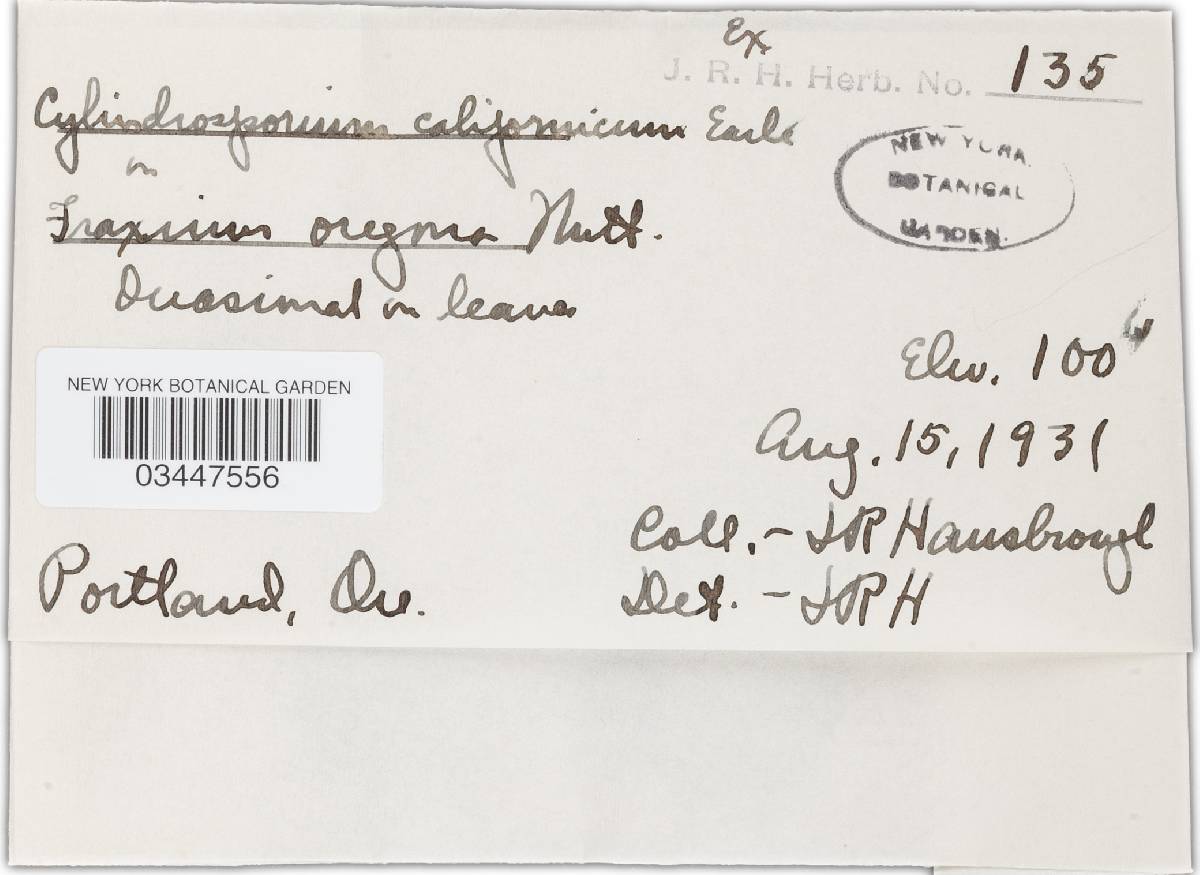 Ex
J. R. H. Herb. No. 135
Cylindrosporium californicum Earle
on
NEW YORK
BOTANICAL
GARDEN.
Fraxinus oregona Nutt.
on leaves
Elev. 100'
NEW YORK BOTANICAL GARDEN
03447556
Aug. 15, 1931
Coll. - JR Hansbrough
Portland, Ore.
Det. - JRH